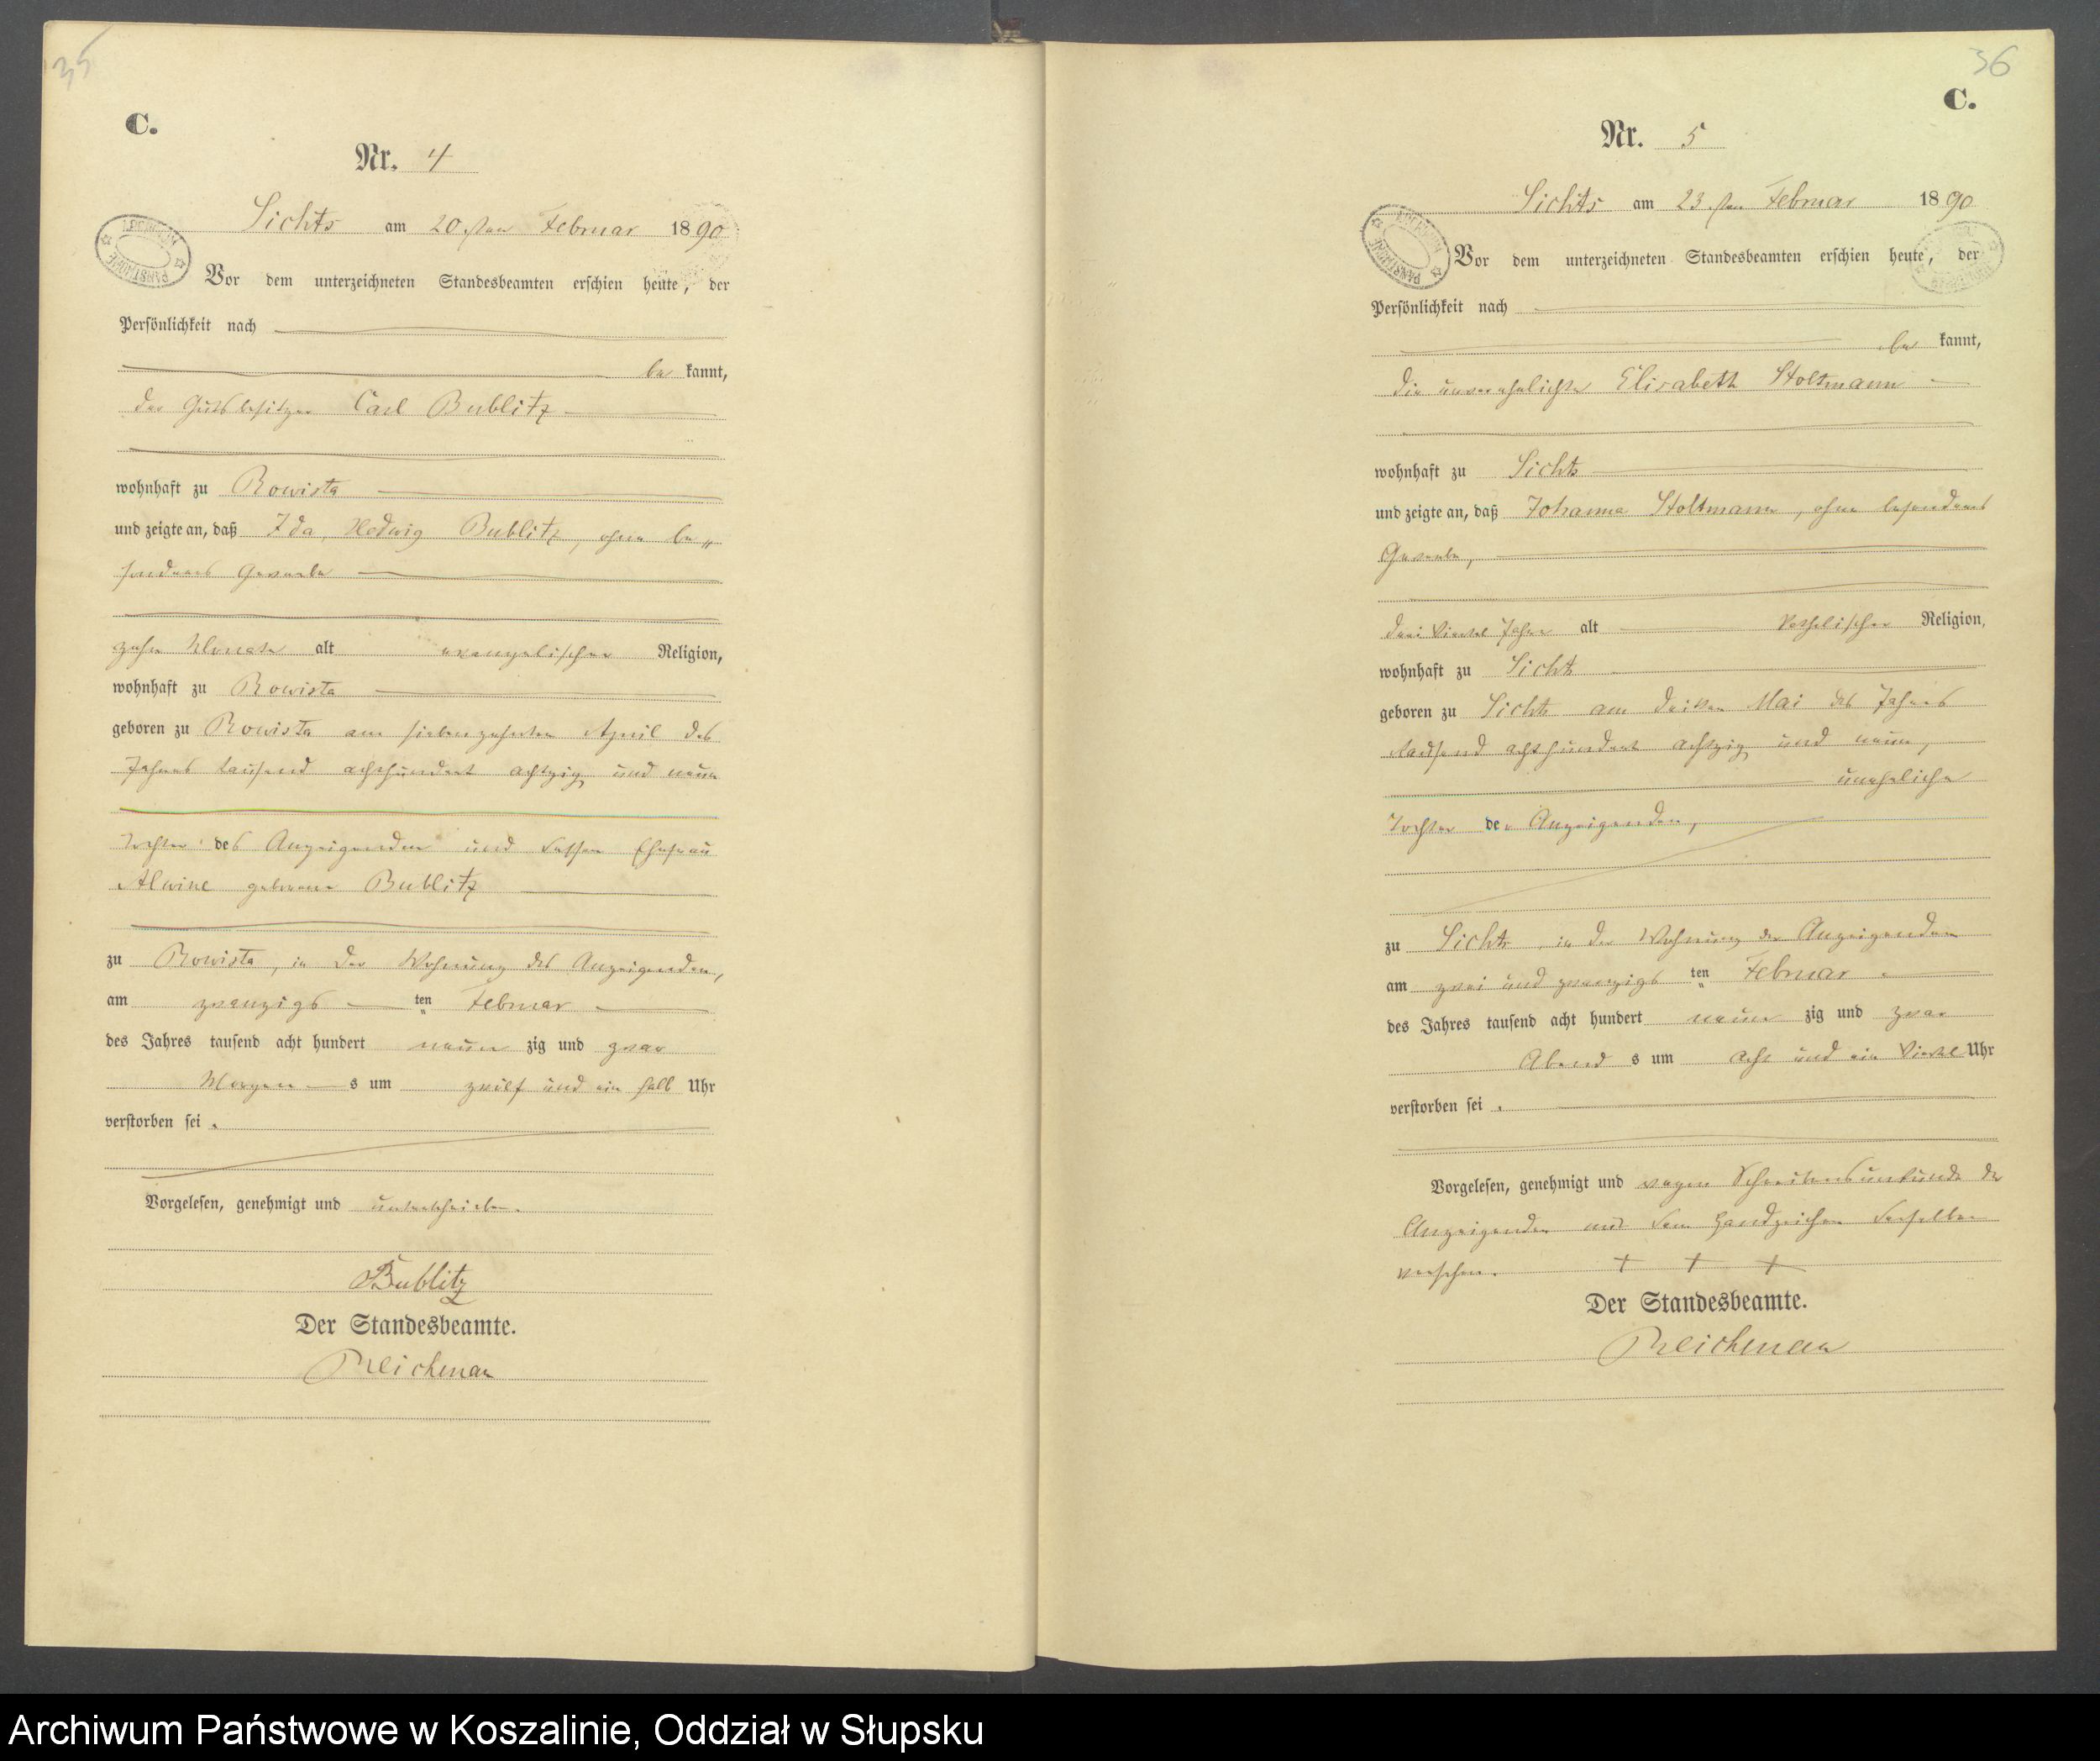 35
C.
Nr. 4
Lichts am 20sten Februar 1890
Vor dem unterzeichneten Standesbeamten erschien heute, der
Persönlichkeit nach
be kannt,
der Gutsbesitzer Carl Bublitz
wohnhaft zu Rowista
und zeigte an, daß Ida, Hedwig Bublitz, ohne be„
sonderes Gewerbe
zehn Monate alt evangelischer Religion,
wohnhaft zu Rowista
geboren zu Rowista am siebenzehnten April des
Jahres tausend achthundert achtzig und neun
Tochter des Anzeigenden und dessen Ehefrau
Alwine geborene Bublitz
zu Rowista, in der Wohnung des Anzeigenden,
am zwanzigs ten Februar
des Jahres tausend acht hundert neun zig und zwar
Morgen s um zwölf und ein halb Uhr
verstorben sei.
Vorgelesen, genehmigt und unterschrieben.
Bublitz
Der Standesbeamte.
36
C.
Nr. 5
Lichts am 23sten Februar 1890
Vor dem unterzeichneten Standesbeamten erschien heute, der
Persönlichkeit nach
be kannt,
die unverehelichte Elisabeth Stoltmann
wohnhaft zu Lichts
und zeigte an, daß Johanna Stoltmann, ohne besonderes
Gewerbe,
drei Viertel Jahre alt katholischer Religion,
wohnhaft zu Lichts
geboren zu Lichts am dritten Mai des Jahres
tausend achthundert achtzig und neun,
uneheliche
Tochter der Anzeigenden,
zu Lichts, in der Wohnung der Anzeigenden
am zwei und zwanzigs ten Februar
des Jahres tausend acht hundert neun zig und zwar
Abend s um acht und ein Viertel Uhr
verstorben sei.
Vorgelesen, genehmigt und wegen Schreibensunkunde der
Anzeigenden mit dem Handzeichen derselben
versehen. + + +
Der Standesbeamte.
Archiwum Państwowe w Koszalinie, Oddział w Słupsku